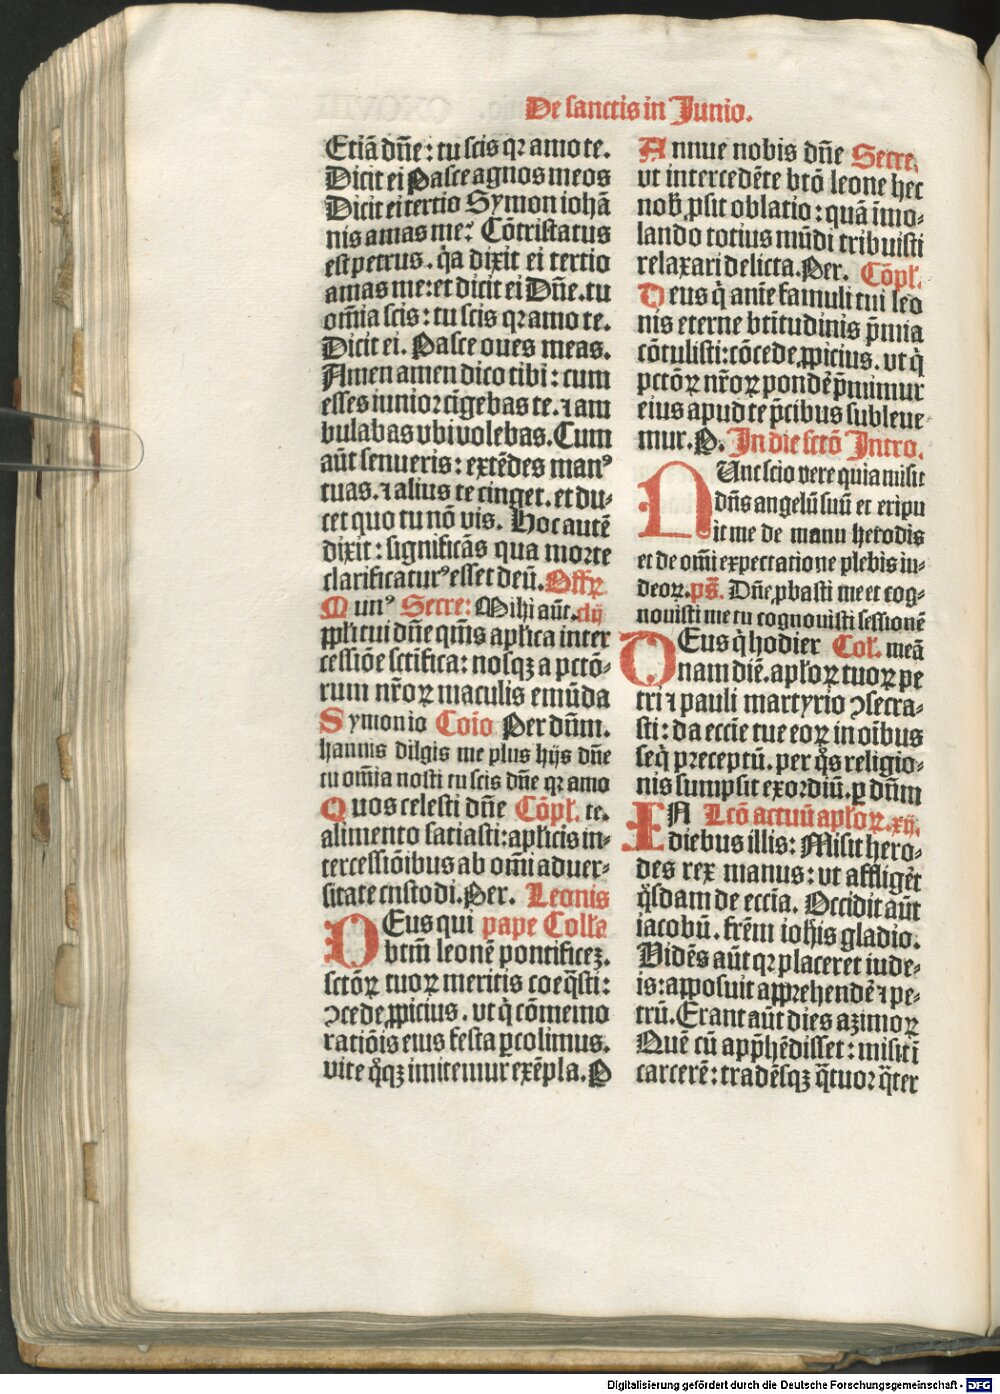 De sanctis in Junio.
Etiã dñe: tu scis qꝛ amo te.
Dicit ei Pasce agnos meos
Dicit ei tertio Symon iohã
nis amas me? Cõtristatus
est petrus. q̇a dixit ei tertio
amas me: et dicit ei Dñe. tu
om̃ia scis: tu scis qꝛ amo te.
Dicit ei. Pasce oues meas.
Amen amen dico tibi: cum
esses iunior cĩgebas te. ⁊ am
bulabas vbi volebas. Cum
aũt senueris: extẽdes manꝰ
tuas. ⁊ alius te cinget. et du-
cet quo tu nõ vis. Hoc autẽ
dixit: significãs qua morte
clarificaturꝰ esset deũ. Offꝝ
Munꝰ Secre: Mihi aũt. clij
ꝓpl'i tui dñe q̃ms apl'ica inter
cessiõe sctifica: nosqꝫ a pctõ-
rum nr̃oꝝ maculis emũda
Symon io Coĩo Per dñm.
hannis dilgis me plus hijs dñe
tu om̃ia nosti tu scis dñe qꝛ amo
Quos celesti dñe Cõpl'. te.
alimento satiasti: apl'icis in-
tercessiõibus ab om̃i aduer-
sitate custodi. Per. Leonis
DEus qui pape Coll'a
btm̃ leonẽ pontificeꝫ.
sctõꝝ tuoꝝ meritis coeq̃sti:
ↄcede ꝓpicius. vt q̇ cõmemo
ratiõis eius festa ꝑcolimus.
vite q̊qꝫ imitemur exẽpla. P
Annue nobis dñe Secre.
vt intercedẽte btõ leone hec
nob̃ ꝓsit oblatio: quã ĩmo-
lando totius mũdi tribuisti
relaxari delicta. Per. Cõpl'.
Deus q̇ anĩe famuli tui leo
nis eterne btĩtudinis p̃mia
cõtulisti: cõcede ꝓpicius. vt q̇
pctõꝝ nr̃oꝝ pondẽ p̃mimur
eius apud te p̃cibus subleue
mur. P. In die sctõ Intro.
NUnc scio vere quia misit
dñs angelũ suũ et eripu
it me de manu herodis
et de om̃i expectatione plebis iu-
deoꝝ. ps̃. Dñe ꝓbasti me et cog-
nouisti me tu cognouisti sessionẽ
DEus q̇ hodier Col'. meã
nam diẽ. apl'oꝝ tuoꝝ pe
tri ⁊ pauli martyrio ↄsecra-
sti: da eccĩe tue eoꝝ in oĩbus
seq̇ preceptũ. per q̊s religio-
nis sumpsit exordiũ. ꝑ dñm
IN Lcõ actuũ apl'oꝝ. xij.
diebus illis: Misit hero-
des rex manus: vt affliget̃
q̊sdam de eccĩa. Occidit aũt
iacobũ. frẽm ioh̃is gladio.
Vidẽs aũt qꝛ placeret iude-
is: apposuit apprehendẽ ⁊ pe-
trũ. Erant aũt dies azimoꝝ
Quẽ cũ app̃hẽdisset: misit ĩ
carcerẽ: tradẽsqꝫ q̃tuor q̃ter
Digitalisierung gefördert durch die Deutsche Forschungsgemeinschaft - DFG